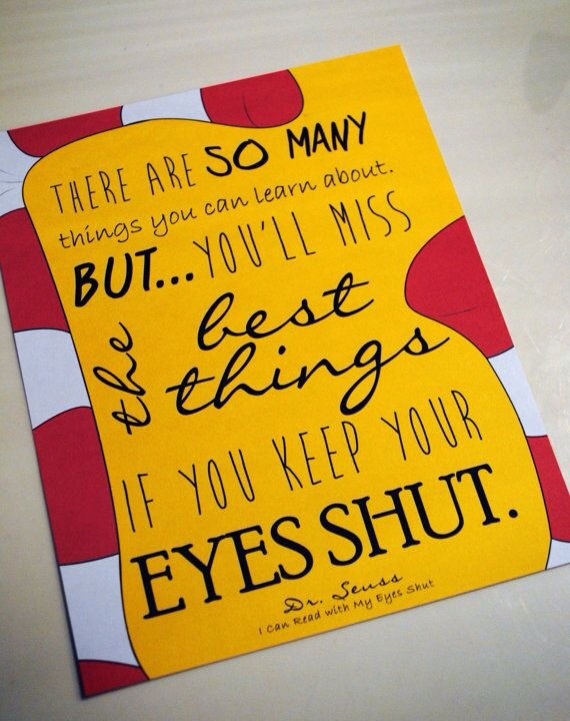 THERE ARE SO MANY
things you can learn about.
BUT...YOU'LL MISS
the best
things
IF YOU KEEP YOUR
EYES SHUT.
Dr. Seuss
I Can Read with My Eyes Shut